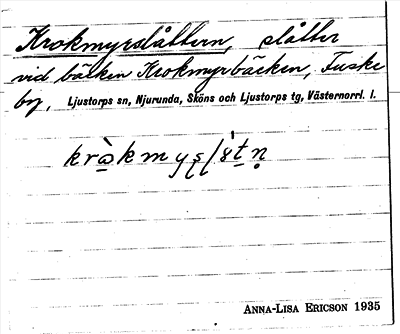 Krokmyrslåttern, slåtter
vid bäcken Krokmyrbäcken, Fuske
by, Ljustorps sn, Njurunda, Sköns och Ljustorps tg, Västernorrl. l.
ANNA-LISA ERICSON 1935